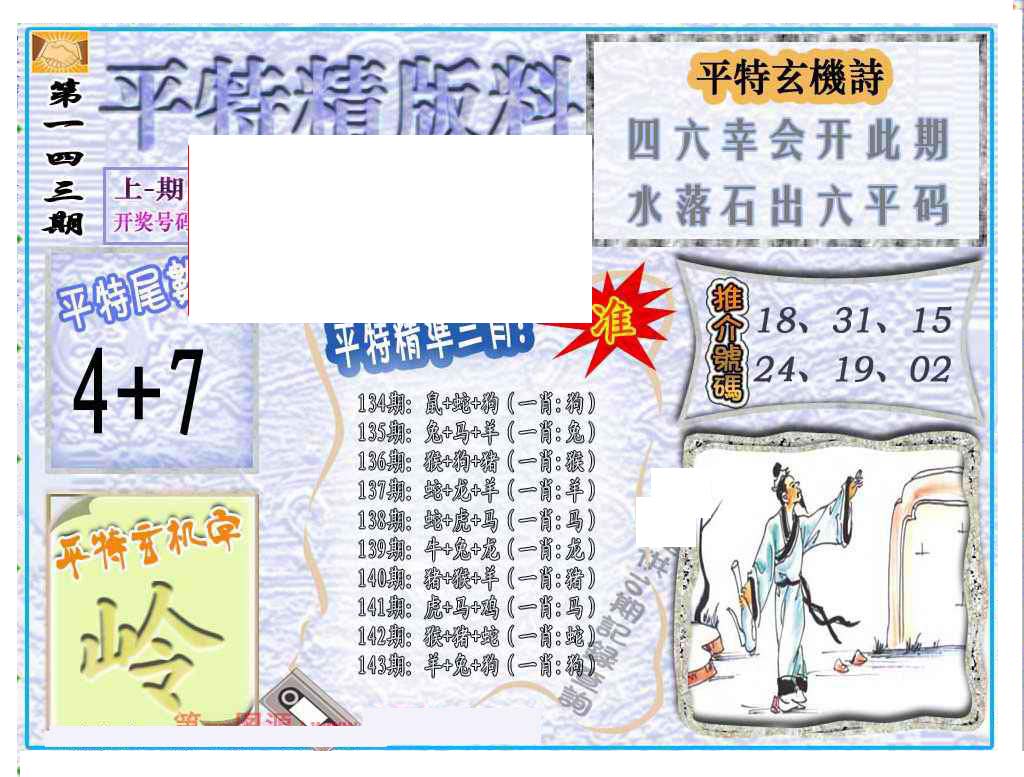 第一四三期
平特精版料
上-期
开奖号码
平特玄機詩
四六幸会开此期
水落石出六平码
平特尾數
4+7
平特精準三肖!
准
推介號碼
18、31、15
24、19、02
134期: 鼠+蛇+狗 (一肖:狗)
135期: 兔+马+羊 (一肖:兔)
136期: 猴+狗+猪 (一肖:猴)
137期: 蛇+龙+羊 (一肖:羊)
138期: 蛇+虎+马 (一肖:马)
139期: 牛+兔+龙 (一肖:龙)
140期: 猪+猴+羊 (一肖:猪)
141期: 虎+马+鸡 (一肖:马)
142期: 猴+猪+蛇 (一肖:蛇)
143期: 羊+兔+狗 (一肖:狗)
平特玄机字
岭